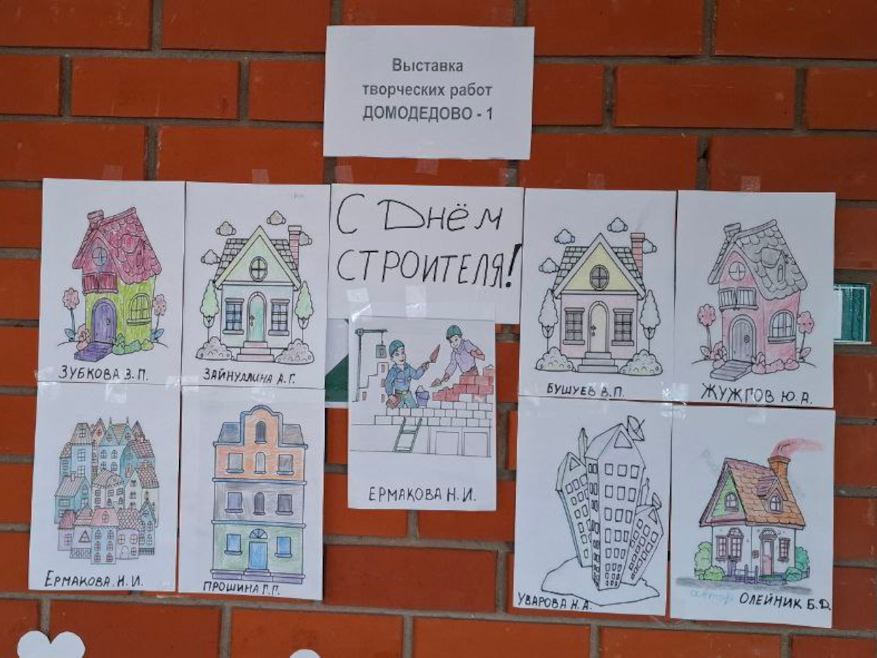 Выставка
творческих работ
ДОМОДЕДОВО - 1
С Днём
СТРОИТЕЛЯ!
ЗУБКОВА З.П.
ЗАЙНУЛЛИНА А.Г.
БУШУЕВ В.П.
ЖУЖГОВ Ю.А.
ЕРМАКОВА Н.И.
ЕРМАКОВА Н.И.
ПРОШИНА Г.Г.
УВАРОВА Н.А.
автор ОЛЕЙНИК Б.D.